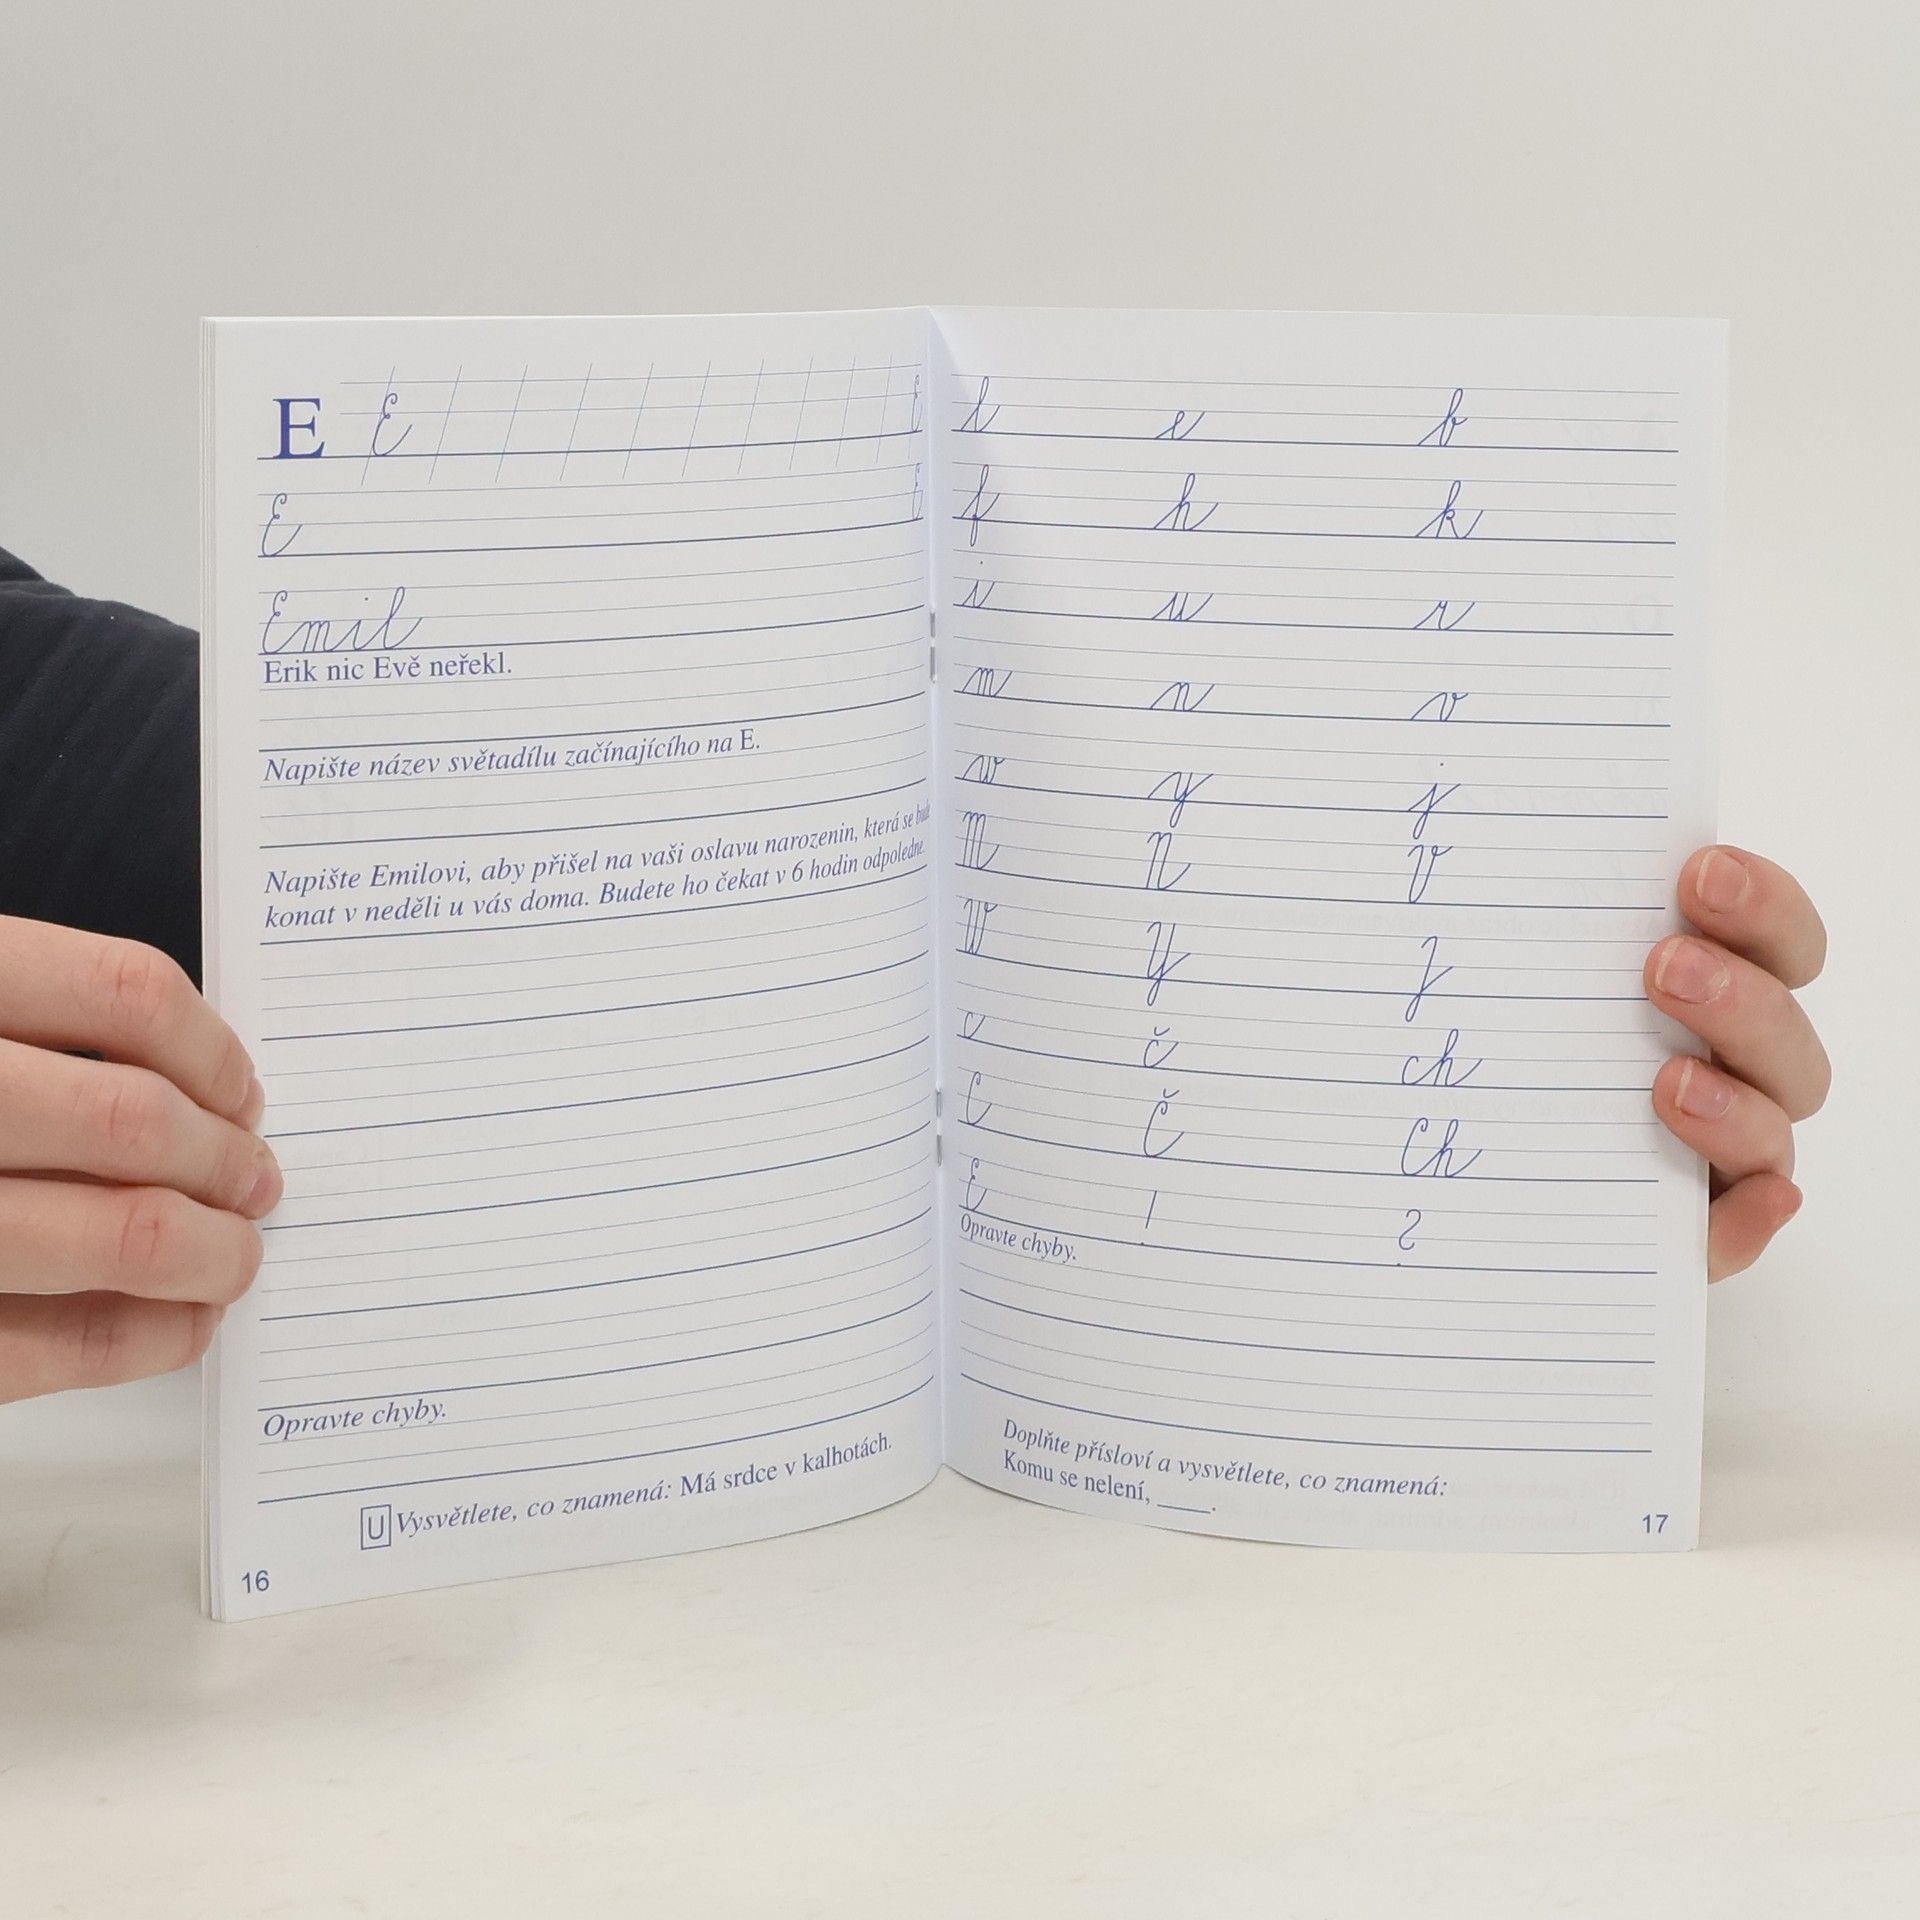 E E E
E E
Emil
Erik nic Evě neřekl.
Napište název světadílu začínajícího na E.
Napište Emilovi, aby přišel na vaši oslavu narozenin, která se bude
konat v neděli u vás doma. Budete ho čekat v 6 hodin odpoledne.
Opravte chyby.
U Vysvětlete, co znamená: Má srdce v kalhotách.
16
l e b
f h k
i u r
m n v
w y j
M N V
W Y J
c č ch
C Č Ch
E ! ?
Opravte chyby.
Doplňte přísloví a vysvětlete, co znamená:
Komu se nelení, ____.
17